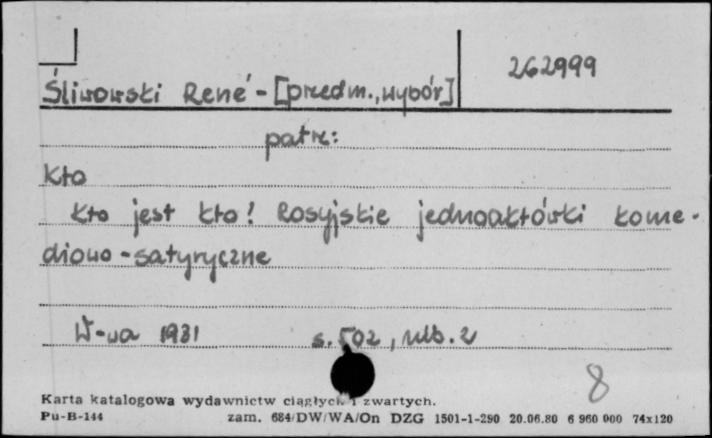 262999
Śliwowski René - [przedm., wybór]
patrz:
Kto
Kto jest kto! Rosyjskie jednoaktówki kome-
diowo-satyryczne
W-wa 1981 s. 502, nlb. 2
8
Karta katalogowa wydawnictw ciągłych i zwartych.
Pu-B-144 zam. 684/DW/WA/On DZG 1501-1-290 20.06.80 6 960 000 74x120